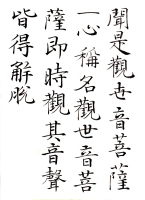 聞是觀世音菩薩
一心稱名觀世音菩
薩即時觀其音聲
皆得解脫